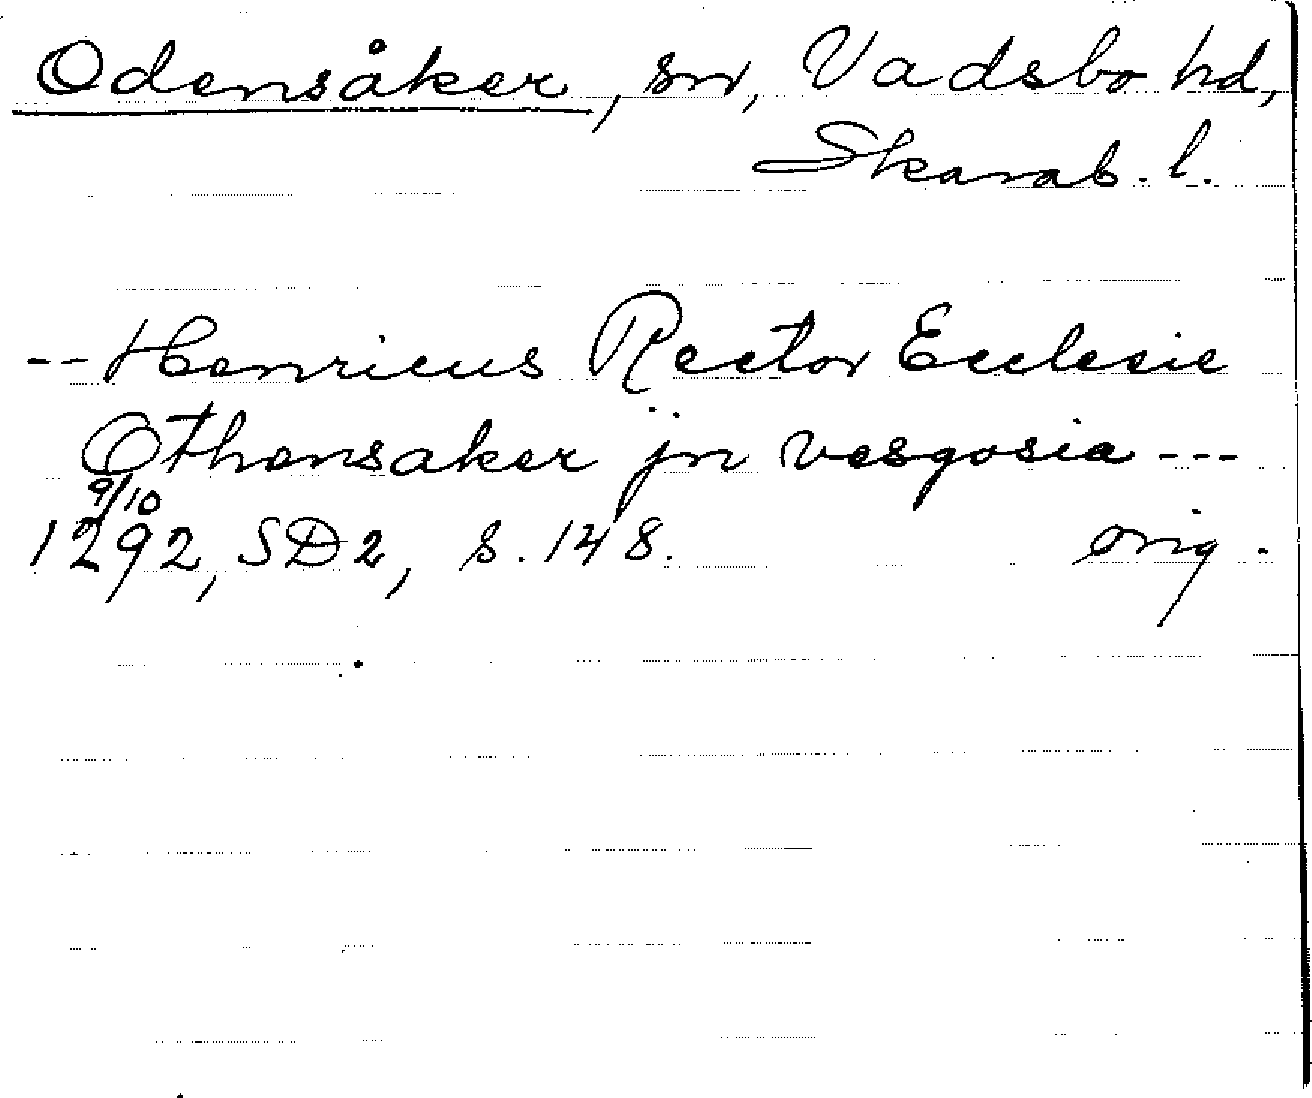 Odensåker, sn, Vadsbo hd,
Skarab. l.
-- Henricus Rector Ecclesie
Othensaker jn vesgosia ---
9/10
1292, SD2, s. 148. orig.